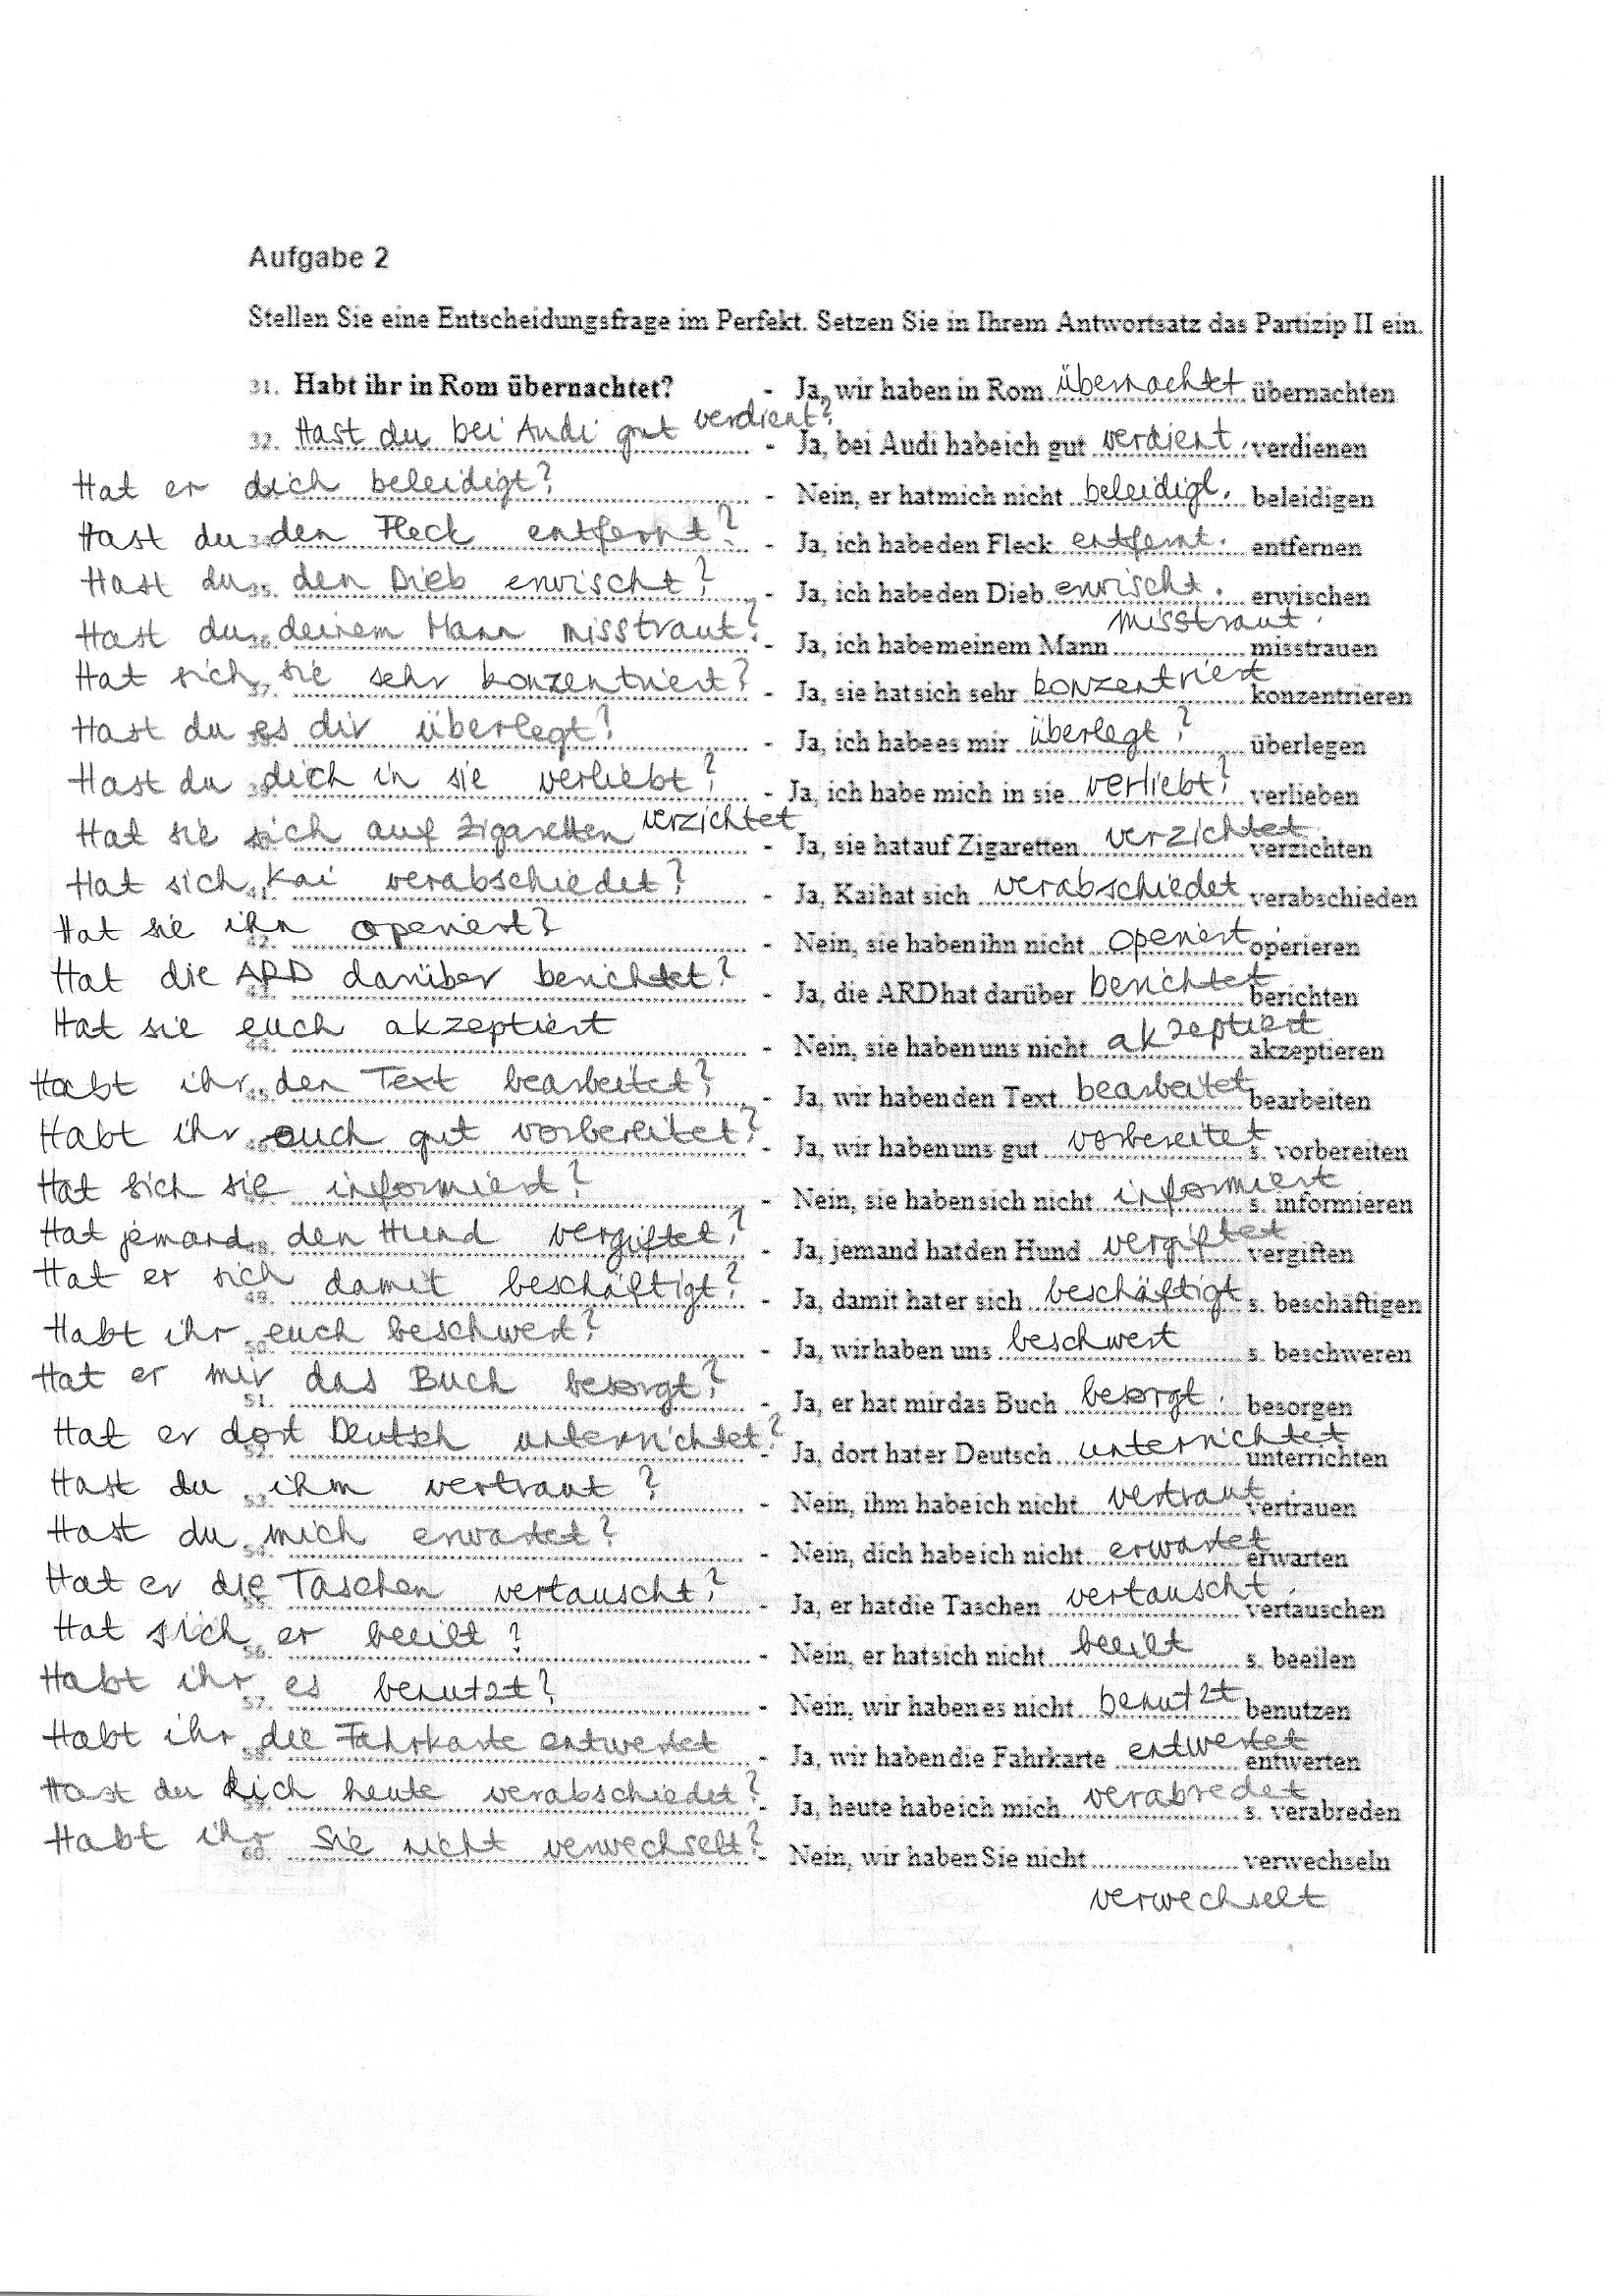 Aufgabe 2
Stellen Sie eine Entscheidungsfrage im Perfekt. Setzen Sie in Ihrem Antwortsatz das Partizip II ein.
31. Habt ihr in Rom übernachtet? - Ja, wir haben in Rom übernachtet übernachten
32. Hast du bei Audi gut verdient? - Ja, bei Audi habe ich gut verdient. verdienen
Hat er dich beleidigt? - Nein, er hat mich nicht beleidigt. beleidigen
Hast du den Fleck entfernt? - Ja, ich habe den Fleck entfernt. entfernen
Hast du 35. den Dieb erwischt? - Ja, ich habe den Dieb erwischt. erwischen
Hast du 36. deinem Mann misstraut? - Ja, ich habe meinem Mann misstraut. misstrauen
Hat sich 37. sie sehr konzentriert? - Ja, sie hat sich sehr konzentriert konzentrieren
Hast du es dir überlegt? - Ja, ich habe es mir überlegt? überlegen
Hast du dich in sie verliebt? - Ja, ich habe mich in sie verliebt? verlieben
Hat sie sich auf Zigaretten verzichtet - Ja, sie hat auf Zigaretten verzichtet verzichten
Hat sich 41. Kai verabschiedet? - Ja, Kai hat sich verabschiedet verabschieden
Hat sie ihn operiert? 42. - Nein, sie haben ihn nicht operiert. operieren
Hat die ARD darüber berichtet? 43. - Ja, die ARD hat darüber berichtet berichten
Hat sie euch akzeptiert 44. - Nein, sie haben uns nicht akzeptiert akzeptieren
Habt ihr 45. den Text bearbeitet? - Ja, wir haben den Text bearbeitet bearbeiten
Habt ihr euch gut vorbereitet? - Ja, wir haben uns gut vorbereitet s. vorbereiten
Hat sich sie informiert? - Nein, sie haben sich nicht informiert s. informieren
Hat jemand 48. den Hund vergiftet? - Ja, jemand hat den Hund vergiftet vergiften
Hat er sich damit beschäftigt? 49. - Ja, damit hat er sich beschäftigt s. beschäftigen
Habt ihr 50. euch beschwert? - Ja, wir haben uns beschwert s. beschweren
Hat er mir das Buch besorgt? 51. - Ja, er hat mir das Buch besorgt. besorgen
Hat er dort Deutsch unterrichtet? 52. - Ja, dort hat er Deutsch unterrichtet unterrichten
Hast du 53. ihm vertraut? - Nein, ihm habe ich nicht vertraut. vertrauen
Hast du 54. mich erwartet? - Nein, dich habe ich nicht erwartet erwarten
Hat er die Taschen vertauscht? 55. - Ja, er hat die Taschen vertauscht. vertauschen
Hat sich 56. er beeilt? - Nein, er hat sich nicht beeilt s. beeilen
Habt ihr es benutzt? 57. - Nein, wir haben es nicht benutzt benutzen
Habt ihr 58. die Fahrkarte entwertet - Ja, wir haben die Fahrkarte entwertet entwerten
Hast du dich heute verabschiedet? 59. - Ja, heute habe ich mich verabredet s. verabreden
Habt ihr Sie nicht verwechselt? 60. - Nein, wir haben Sie nicht verwechseln
verwechselt